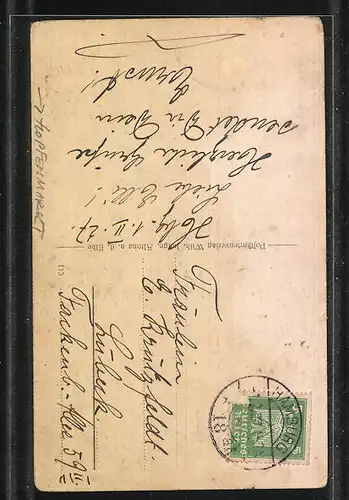 → HOPFENMARKT
Hbg. 1. II. 27.
Liebe Elli!
Herzliche Grüße
sendet Dir Dein
Ernst!
Postkartenverlag Wilh. Altona a. d. Elbe
115
Fräulein
E. Kreutzfeldt
Lübeck
Fackenb. Allee 59 II
HAMBURG
Deutsches
Reich